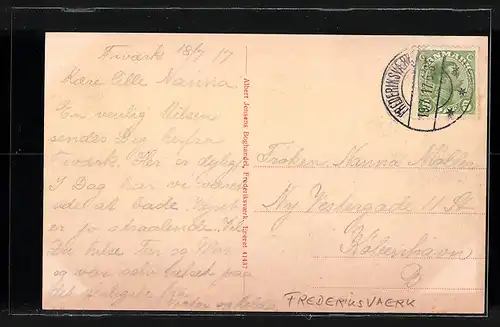 Fværk 18/7 17
Kære lille Nanna
En venlig Hilsen
sendes Dig herfra
Fværk. Her er dejligt
I Dag har vi været
ude at bade. Vejret
er jo straalende. Vil
Du hilse Far og Mor
og vær selv hilset paa
det
Albert Jensens Boghandel, Frederiksværk. Eneret 41437
FREDERIKSVÆRK
DANMARK
Frøken Nanna Møller
Ny Vestergade 11 St
København
B
FREDERIKSVAERK